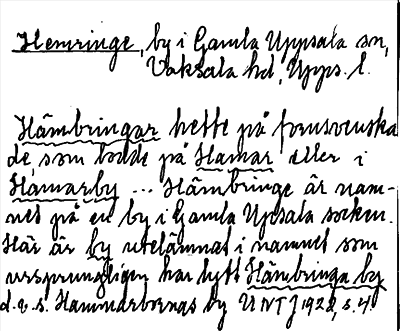 Hemringe, by i Gamla Uppsala sn,
Vaksala hd, Upps. l.
Hämbringar hette på fornsvenska
de, som bodde på Hamar eller i
Hamarby ... Hämbringe är nam-
net på en by i Gamla Upsala socken.
Här är by utelämnat i namnet som
ursprungligen har lytt Hämbringa by
d. v. s. Hammarbornas by UNTJ 1928, s. 4.